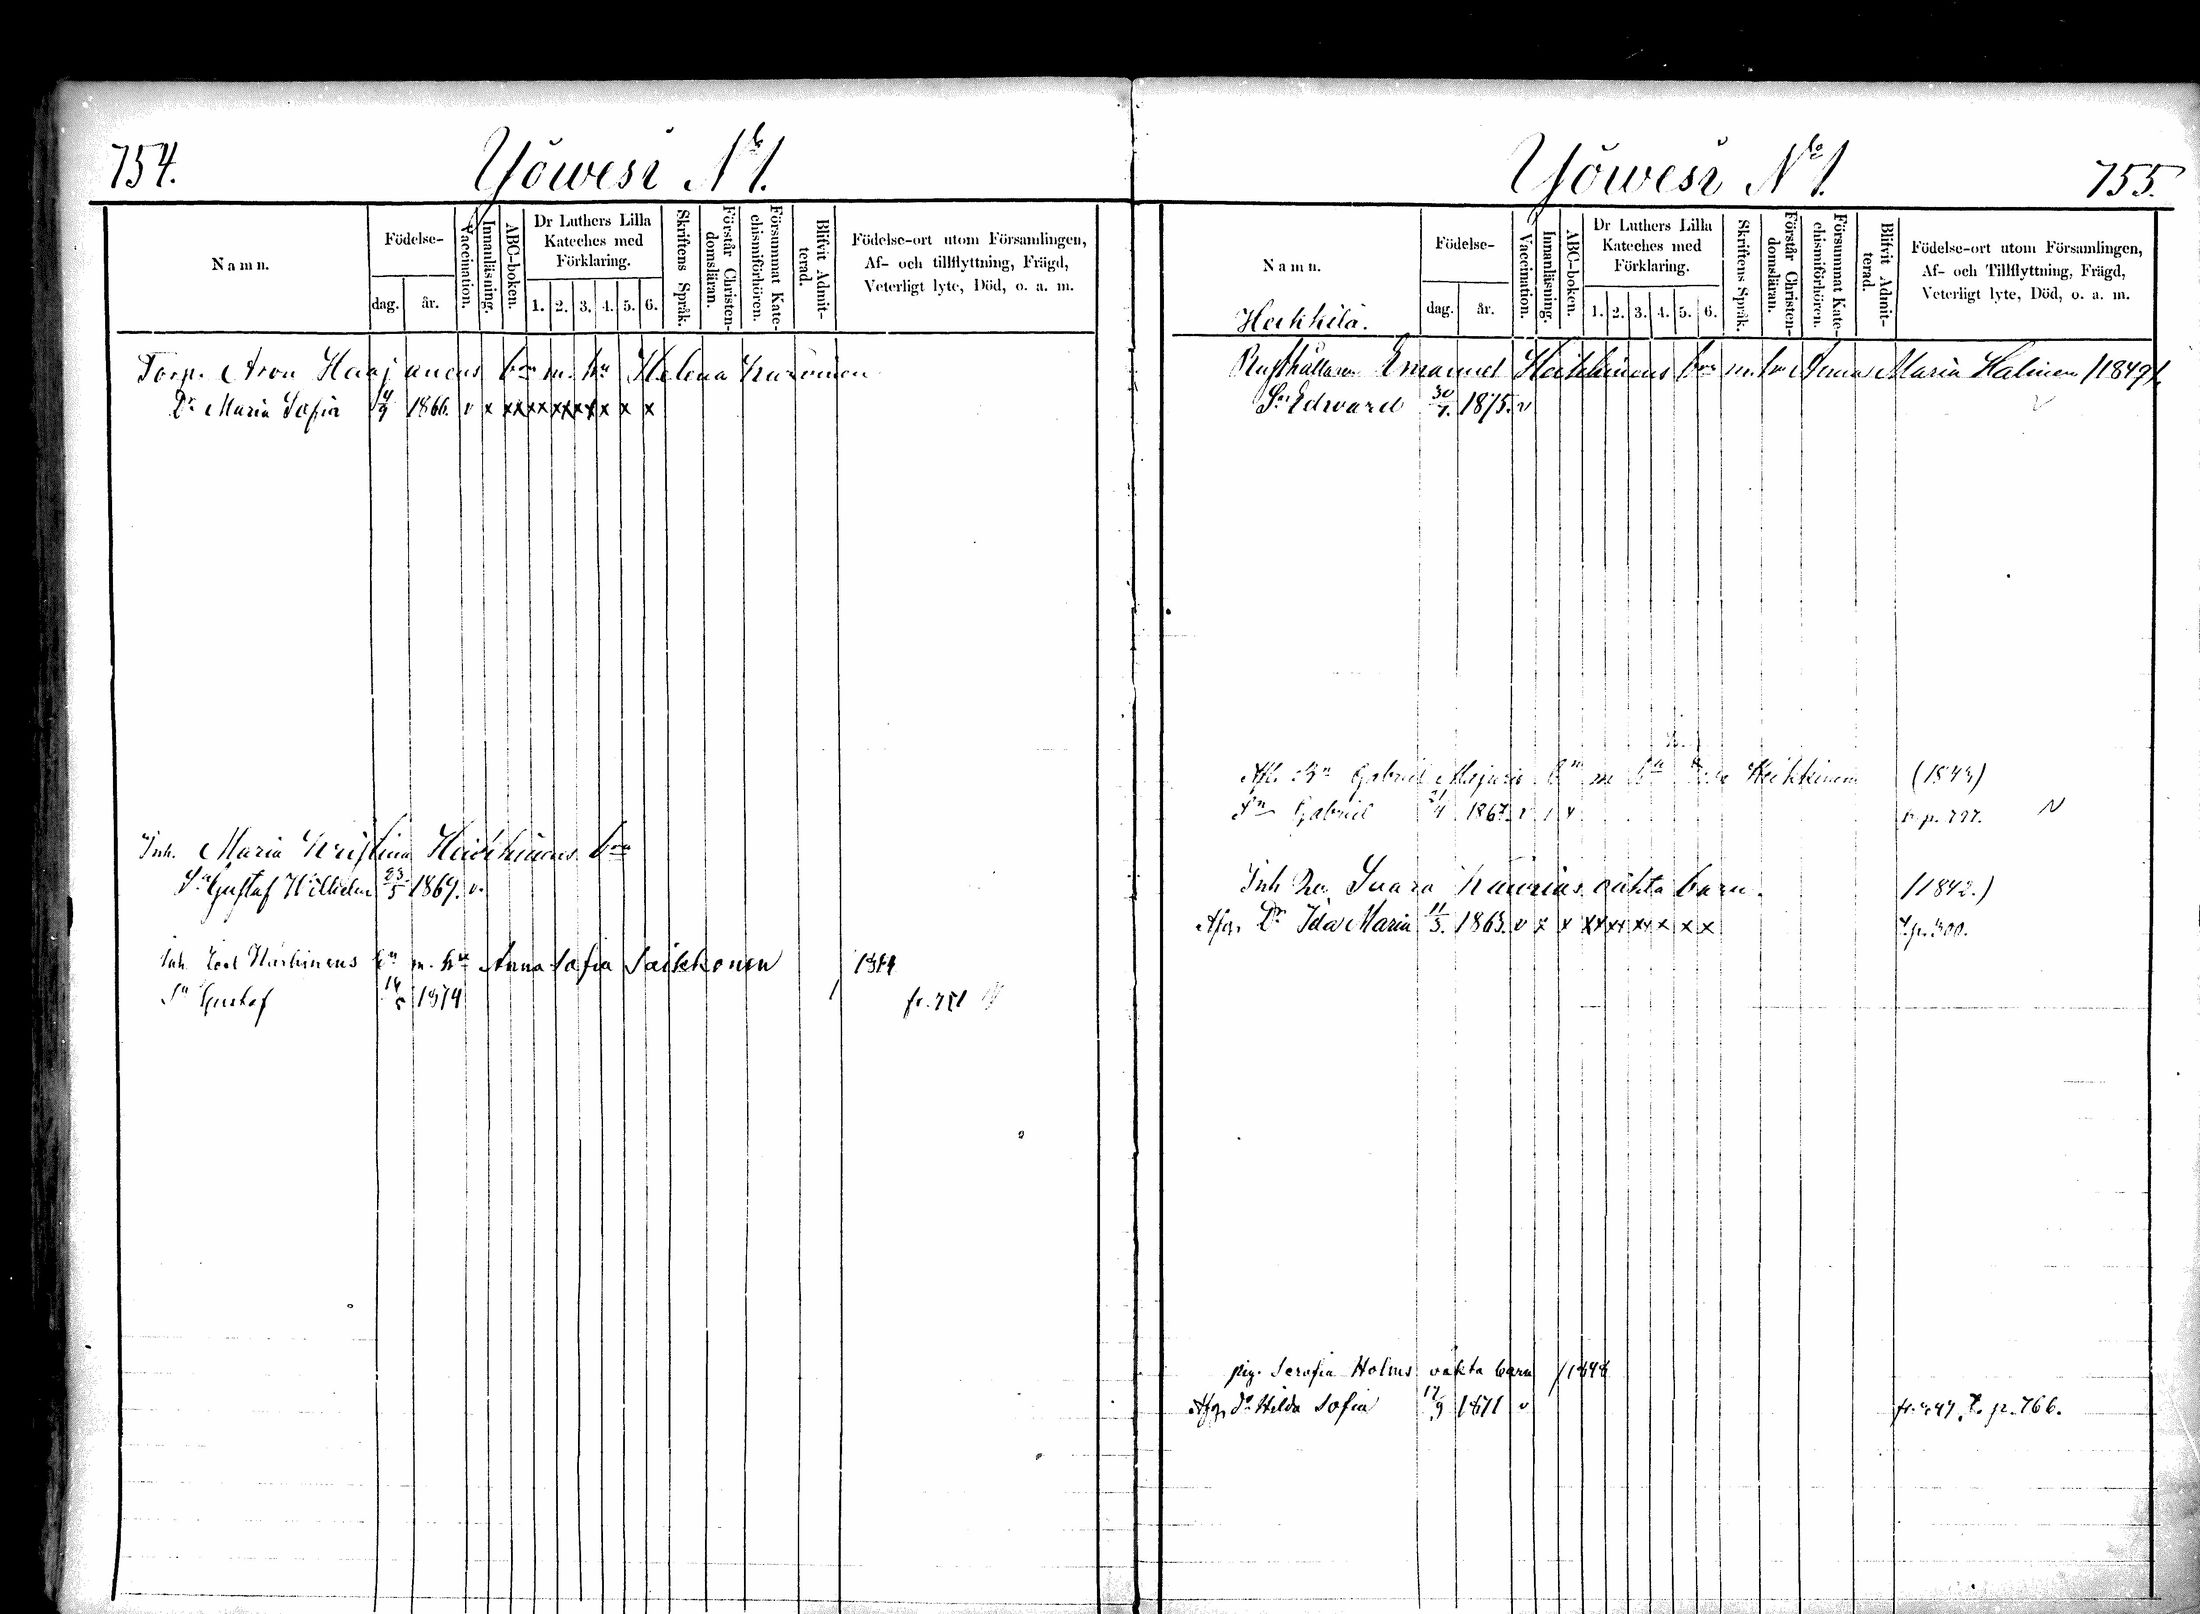 754.
Yöwesi No 1.
Namn.
Födelse-
dag.
år.
Vaccination.
Innanläsning.
ABC-boken.
Dr Luthers Lilla
Kateches med
Förklaring.
1. 2. 3. 4. 5. 6.
Skriftens Språk.
Förstår Christen-
domsläran.
Försummat Kate-
chismiförhören.
Blifvit Admit-
terad.
Födelse-ort utom Församlingen,
Af- och tillflyttning, Frägd,
Veterligt lyte, Död, o. a. m.
Torp. Aron Haajanens bn m. hu Helena
Dr Maria Sofia 1866. v x xx xx xx xx x x x
Inh. Maria Kristina Heikkinens bn
Sn Gustaf Wilhelm 23/5 1869. v.
Inh. Heikkinens bn m. hu Anna Sofia Saikkonen
Sn Gustaf 1874 fr. 751
Yöwesi No 1.
755.
Namn.
Heikkilä.
Födelse-
dag.
år.
Vaccination.
Innanläsning.
ABC-boken.
Dr Luthers Lilla
Kateches med
Förklaring.
1. 2. 3. 4. 5. 6.
Skriftens Språk.
Förstår Christen-
domsläran.
Försummat Kate-
chismiförhören.
Blifvit Admit-
terad.
Födelse-ort utom Församlingen,
Af- och Tillflyttning, Frägd,
Veterligt lyte, Död, o. a. m.
Rusthållaren Emanuel Heikkinens bn m. hu Anna Maria Halinen (1849)
Sn Edward 30/7. 1875. v
Gabriel bn m hu Heikkinen
Sn Gabriel 1867. v
Inh oäkta barn. (1842.)
Afg. Dr Ida Maria 11/3. 1863. v x x xx xx xx x x x T. p. 300.
pig. Serafia Holms oäkta barn (1848
Afg. Dr Hilda Sofia 17/9 1871 v T. p. 766.